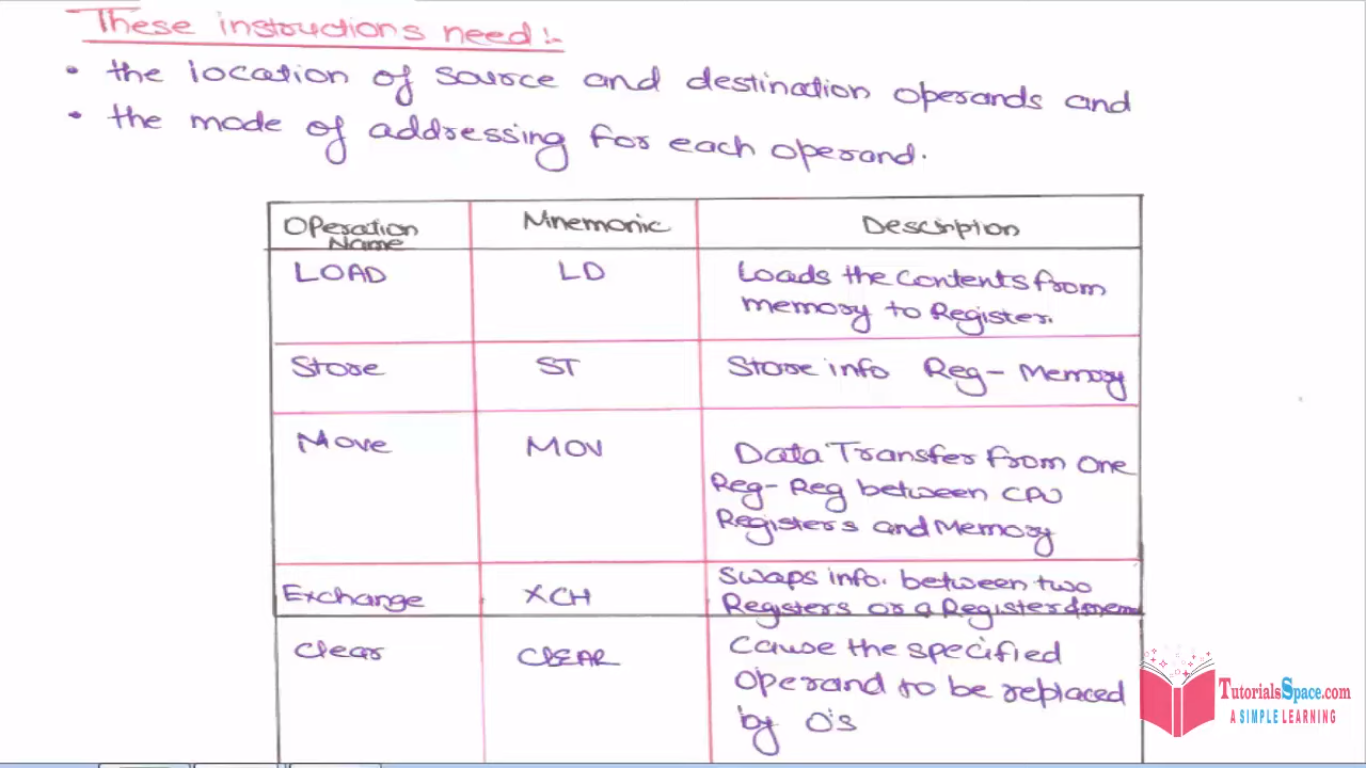 These instructions need :-
• the location of source and destination operands and
• the mode of addressing for each operand.
Operation Name Mnemonic Description
LOAD LD Loads the contents from
memory to Register.
Store ST Store info Reg - Memory
Move MOV Data Transfer from one
Reg - Reg between CPU
Registers and Memory
Exchange XCH Swaps info. between two
Registers or a Register & mem
Clear ClEAR Cause the specified
operand to be replaced
by 0's
TutorialsSpace.com
A SIMPLE LEARNING